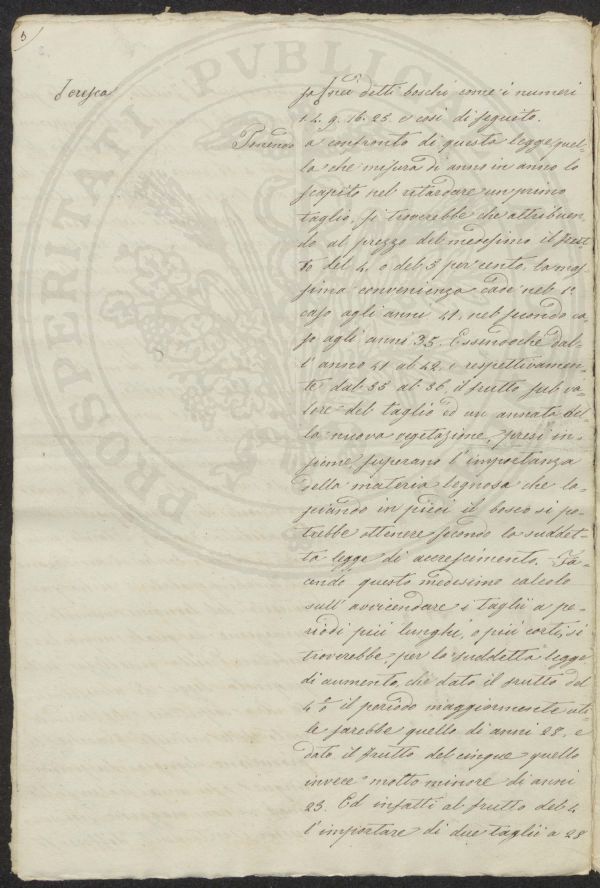 5
sa, sui detti boschi come i numeri
1. 4. 9. 16. 25. e così di seguito.
Ponendo a confronto di questa legge, quel-
la che misura di anno in anno lo
scapito nel ritardare un primo
taglio, si troverebbe che attribuen-
do al prezzo del medesimo il frut-
to del 4. o del 5 per cento, la mas-
sima convenienza cade nel 1º
caso agli anni 41. nel secondo ca-
so agli anni 35. Essendochè dal-
l'anno 41 al 42. e respettivamen-
te dal 35 al 36, il frutto sul va-
lore del taglio ed un annata del-
la nuova vegetazione, presi in-
sieme, superano l'importanza
della materia legnosa che la-
sciando in piedi il bosco si po-
trebbe ottenere secondo la suddet-
ta legge di accrescimento. Fa-
cendo questo medesimo calcolo
sull'avvicendare i taglii a pe-
riodi più lunghi, o più corti, si
troverebbe, per la suddetta legge
di aumento, che dato il frutto del
4 % il periodo maggiormente uti-
le sarebbe quello di anni 28. e
dato il frutto del cinque quello
invece molto minore di anni
23. Ed infatti al frutto del 4
l'importare di due taglii a 28
PROSPERITATI PVBLICAE